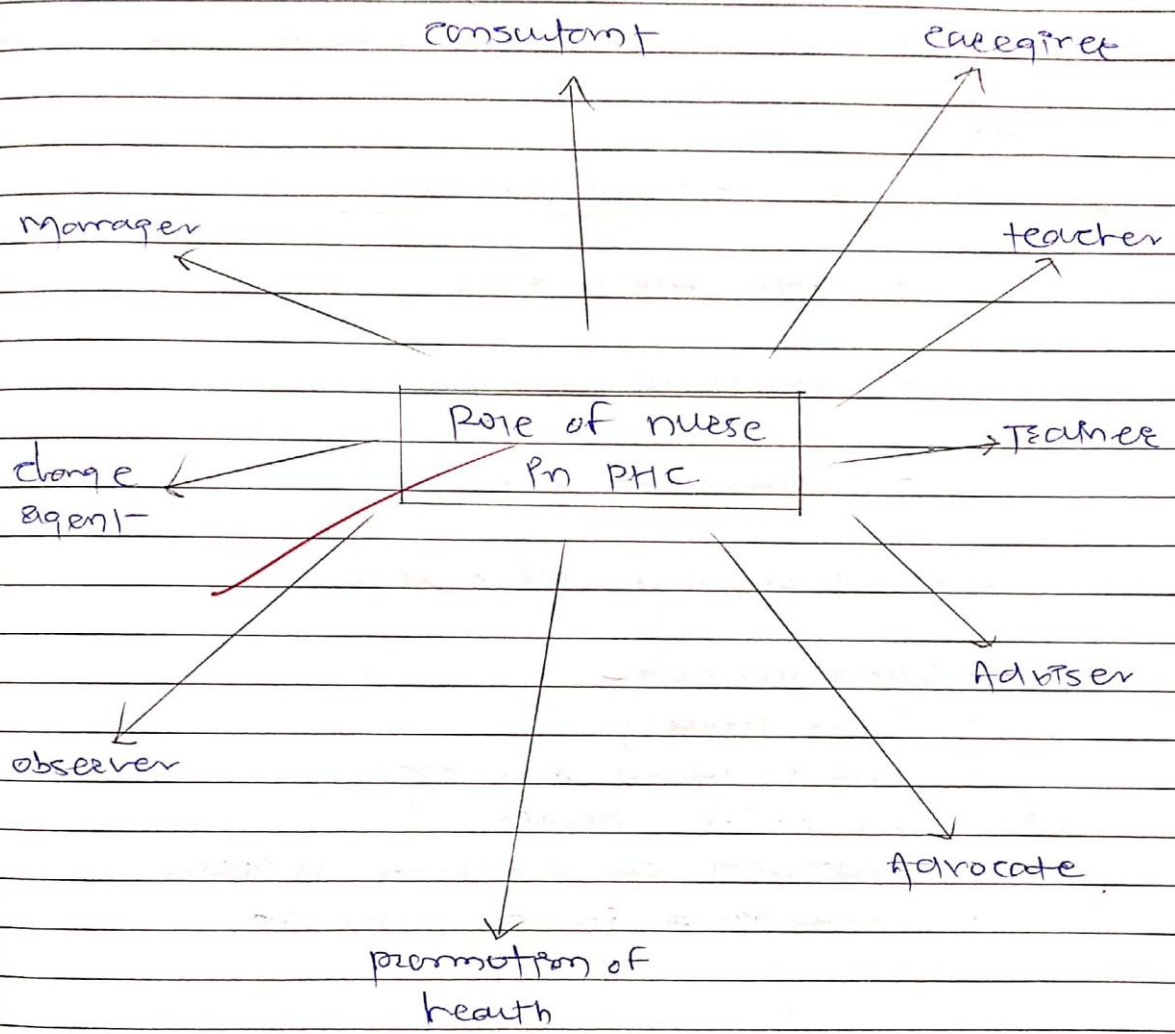 consultant
caregiver
Manager
teacher
Role of nurse
in PHC
Trainer
change
agent
Adviser
observer
Advocate
promotion of
health